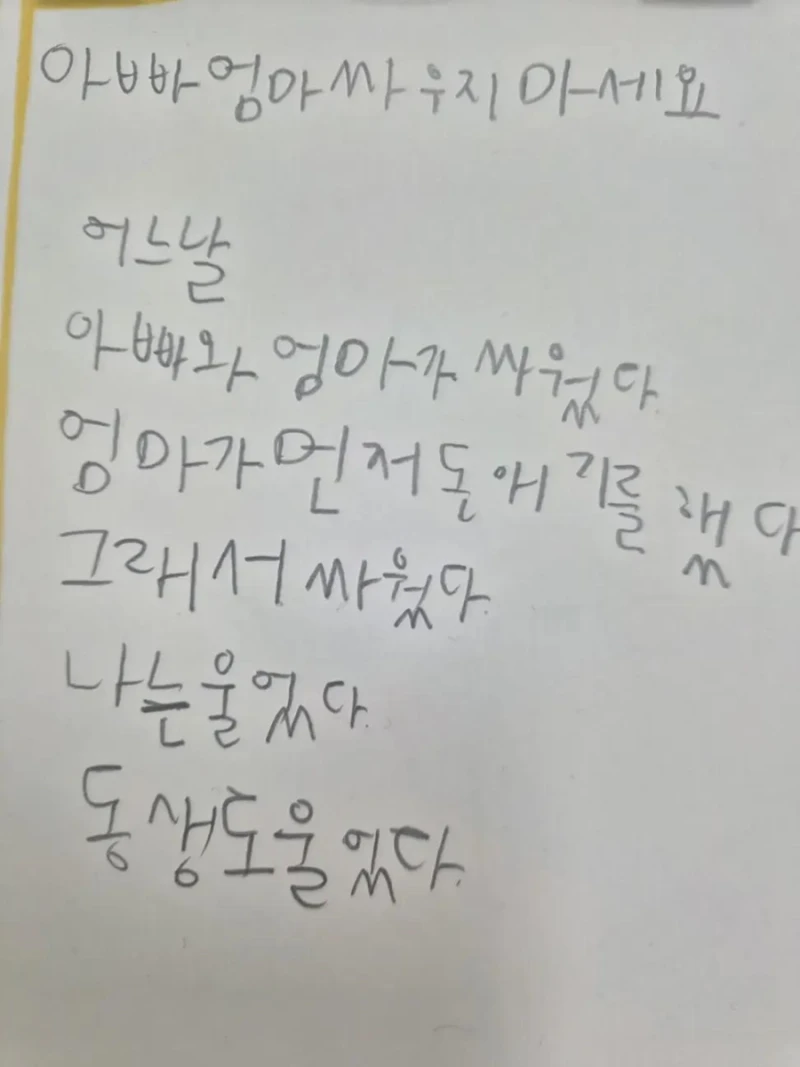 아빠엄마싸우지마세요
어느날
아빠와 엄마가 싸웠다
엄마가먼저돈애기를 했다
그래서 싸웠다
나는울었다
동생도울었다